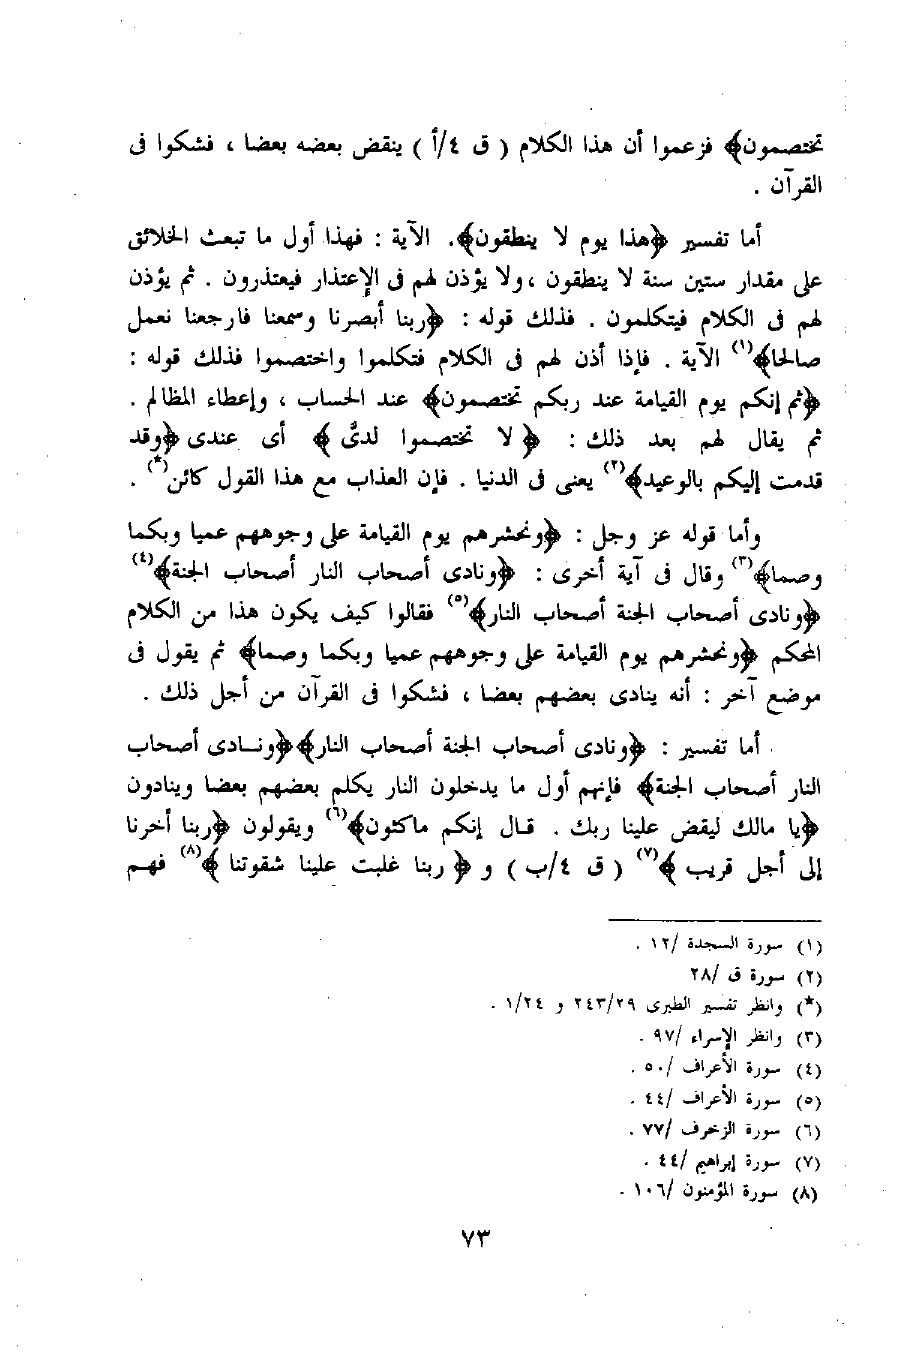 تختصمون﴾ فزعموا أن هذا الكلام ( ق ٤/أ ) ينقض بعضه بعضا ، فشكوا فى
القرآن .
أما تفسير ﴿هذا يوم لا ينطقون﴾. الآية : فهذا أول ما تبعث الخلائق
على مقدار ستين سنة لا ينطقون ، ولا يؤذن لهم فى الإعتذار فيعتذرون . ثم يؤذن
لهم فى الكلام فيتكلمون . فذلك قوله : ﴿ربنا أبصرنا وسمعنا فارجعنا نعمل
صالحا﴾(١) الآية . فإذا أذن لهم فى الكلام فتكلموا واختصموا فذلك قوله :
﴿ثم إنكم يوم القيامة عند ربكم تختصمون﴾ عند الحساب ، وإعطاء المظالم .
ثم يقال لهم بعد ذلك : ﴿ لا تختصموا لدىَّ ﴾ أى عندى ﴿وقد
قدمت إليكم بالوعيد﴾(٢) يعنى فى الدنيا . فإن العذاب مع هذا القول كائن(*) .
وأما قوله عز وجل : ﴿ونحشرهم يوم القيامة على وجوههم عميا وبكما
وصما﴾(٣) وقال فى آية أخرى : ﴿ونادى أصحاب النار أصحاب الجنة﴾(٤)
﴿ونادى أصحاب الجنة أصحاب النار﴾(٥) فقالوا كيف يكون هذا من الكلام
المحكم ﴿ونحشرهم يوم القيامة على وجوههم عميا وبكما وصما﴾ ثم يقول فى
موضع آخر : أنه ينادى بعضهم بعضا ، فشكوا فى القرآن من أجل ذلك .
أما تفسير : ﴿ونادى أصحاب الجنة أصحاب النار﴾﴿ونـادى أصحاب
النار أصحاب الجنة﴾ فإنهم أول ما يدخلون النار يكلم بعضهم بعضا وينادون
﴿يا مالك ليقض علينا ربك . قـال إنكم ماكثون﴾(٦) ويقولون ﴿ربنا أخرنا
إلى أجل قريب ﴾(٧) ( ق ٤/ب ) و ﴿ ربنا غلبت علينا شقوتنا ﴾(٨) فهـم
(١) سورة السجدة /١٢ .
(٢) سورة ق /٢٨
(*) وانظر تفسير الطبرى ٢٤٣/٢٩ و ١/٢٤ .
(٣) وانظر الإسراء /٩٧ .
(٤) سورة الأعراف /٥٠ .
(٥) سورة الأعراف /٤٤ .
(٦) سورة الزخرف /٧٧ .
(٧) سورة إبراهيم /٤٤ .
(٨) سورة المؤمنون /١٠٦ .
٧٣